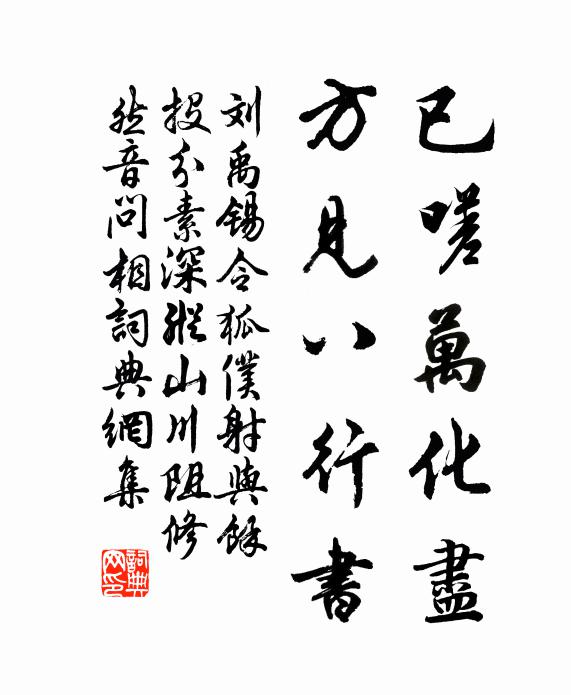 已嗟萬化盡
方見八行書
刘禹锡令狐僕射與餘
投分素深縱山川阻修
然音問相詞典網集
詞典網印